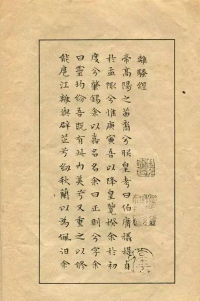 離騷經
帝高陽之苗裔兮朕皇考曰伯庸攝提貞
於孟陬兮惟庚寅吾以降皇覽揆余於初
度兮肇錫余以嘉名名余曰正則兮字余
曰靈均紛吾既有此內美兮又重之以修
能扈江離與辟芷兮紉秋蘭以為佩汨余